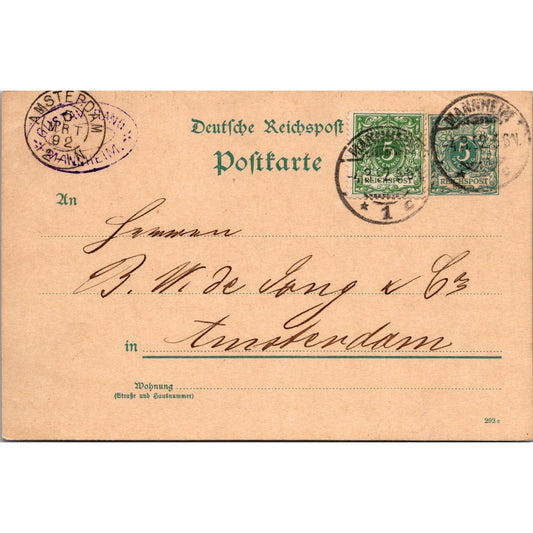 AMSTERDAM
5
MRT
92
MANNHEIM.
Deutsche Reichspost
Postkarte
5
REICHSPOST
MANNHEIM
* 1 c
MANNHEIM
5
REICHSPOST
An
Herren
B. W. de Jong & Co
in Amsterdam
Wohnung
(Straße und Hausnummer)
292 c